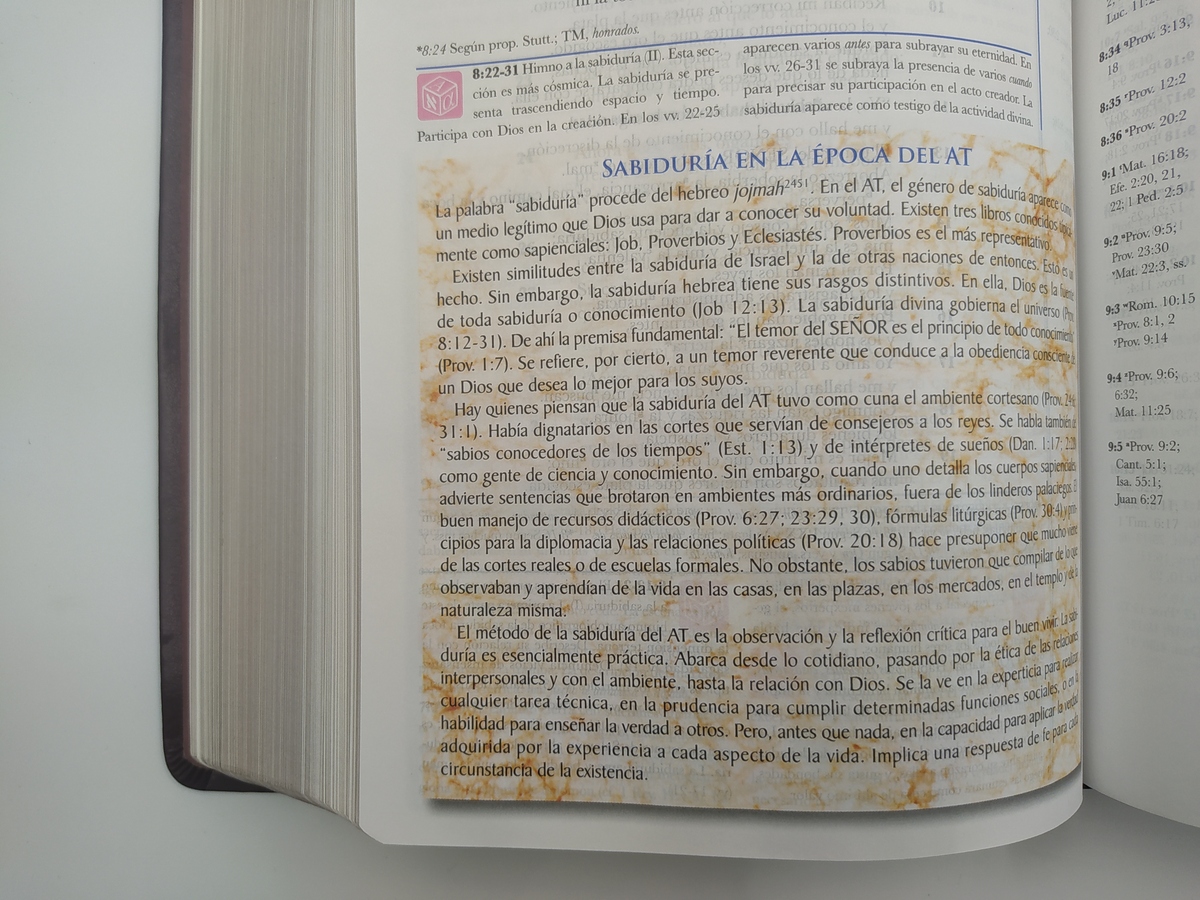 *8:24 Según prop. Stutt.; TM, honrados.
8:22-31 Himno a la sabiduría (II). Esta sec-
ción es más cósmica. La sabiduría se pre-
senta trascendiendo espacio y tiempo.
Participa con Dios en la creación. En los vv. 22-25
aparecen varios antes para subrayar su eternidad. En
los vv. 26-31 se subraya la presencia de varios cuando
para precisar su participación en el acto creador. La
sabiduría aparece como testigo de la actividad divina.
SABIDURÍA EN LA ÉPOCA DEL AT
La palabra “sabiduría” procede del hebreo jojmah2451. En el AT, el género de sabiduría aparece como
un medio legítimo que Dios usa para dar a conocer su voluntad. Existen tres libros conocidos
mente como sapienciales: Job, Proverbios y Eclesiastés. Proverbios es el más representativo.
Existen similitudes entre la sabiduría de Israel y la de otras naciones de entonces. Esto es un
hecho. Sin embargo, la sabiduría hebrea tiene sus rasgos distintivos. En ella, Dios es la fuente
de toda sabiduría o conocimiento (Job 12:13). La sabiduría divina gobierna el universo (Prov.
8:12-31). De ahí la premisa fundamental: “El temor del SEÑOR es el principio de todo conocimiento”
(Prov. 1:7). Se refiere, por cierto, a un temor reverente que conduce a la obediencia consciente
un Dios que desea lo mejor para los suyos.
Hay quienes piensan que la sabiduría del AT tuvo como cuna el ambiente cortesano (Prov.
31:1). Había dignatarios en las cortes que servían de consejeros a los reyes. Se habla también de
“sabios conocedores de los tiempos” (Est. 1:13) y de intérpretes de sueños (Dan. 1:17; 2:28
como gente de ciencia y conocimiento. Sin embargo, cuando uno detalla los cuerpos sapienciales
advierte sentencias que brotaron en ambientes más ordinarios, fuera de los linderos palaciegos. El
buen manejo de recursos didácticos (Prov. 6:27; 23:29, 30), fórmulas litúrgicas (Prov. 30:4) y prin-
cipios para la diplomacia y las relaciones políticas (Prov. 20:18) hace presuponer que mucho viene
de las cortes reales o de escuelas formales. No obstante, los sabios tuvieron que compilar de lo que
observaban y aprendían de la vida en las casas, en las plazas, en los mercados, en el templo y de la
naturaleza misma.
El método de la sabiduría del AT es la observación y la reflexión crítica para el buen vivir. La sabi-
duría es esencialmente práctica. Abarca desde lo cotidiano, pasando por la ética de las relaciones
interpersonales y con el ambiente, hasta la relación con Dios. Se la ve en la experticia para realizar
cualquier tarea técnica, en la prudencia para cumplir determinadas funciones sociales, o en la
habilidad para enseñar la verdad a otros. Pero, antes que nada, en la capacidad para aplicar la verdad
adquirida por la experiencia a cada aspecto de la vida. Implica una respuesta de fe para cada
circunstancia de la existencia.
Luc. 11:
8:34 ᵠProv. 3:13,
18
8:35 ʳProv. 12:2
8:36 ˢProv. 20:2
9:1 ᵗMat. 16:18;
Efe. 2:20, 21,
22; 1 Ped. 2:5
9:2 ᵘProv. 9:5;
Prov. 23:30
ᵛMat. 22:3, ss.
9:3 ʷRom. 10:15
ˣProv. 8:1, 2
ʸProv. 9:14
9:4 ᶻProv. 9:6;
6:32;
Mat. 11:25
9:5 ᵃProv. 9:2;
Cant. 5:1;
Isa. 55:1;
Juan 6:27